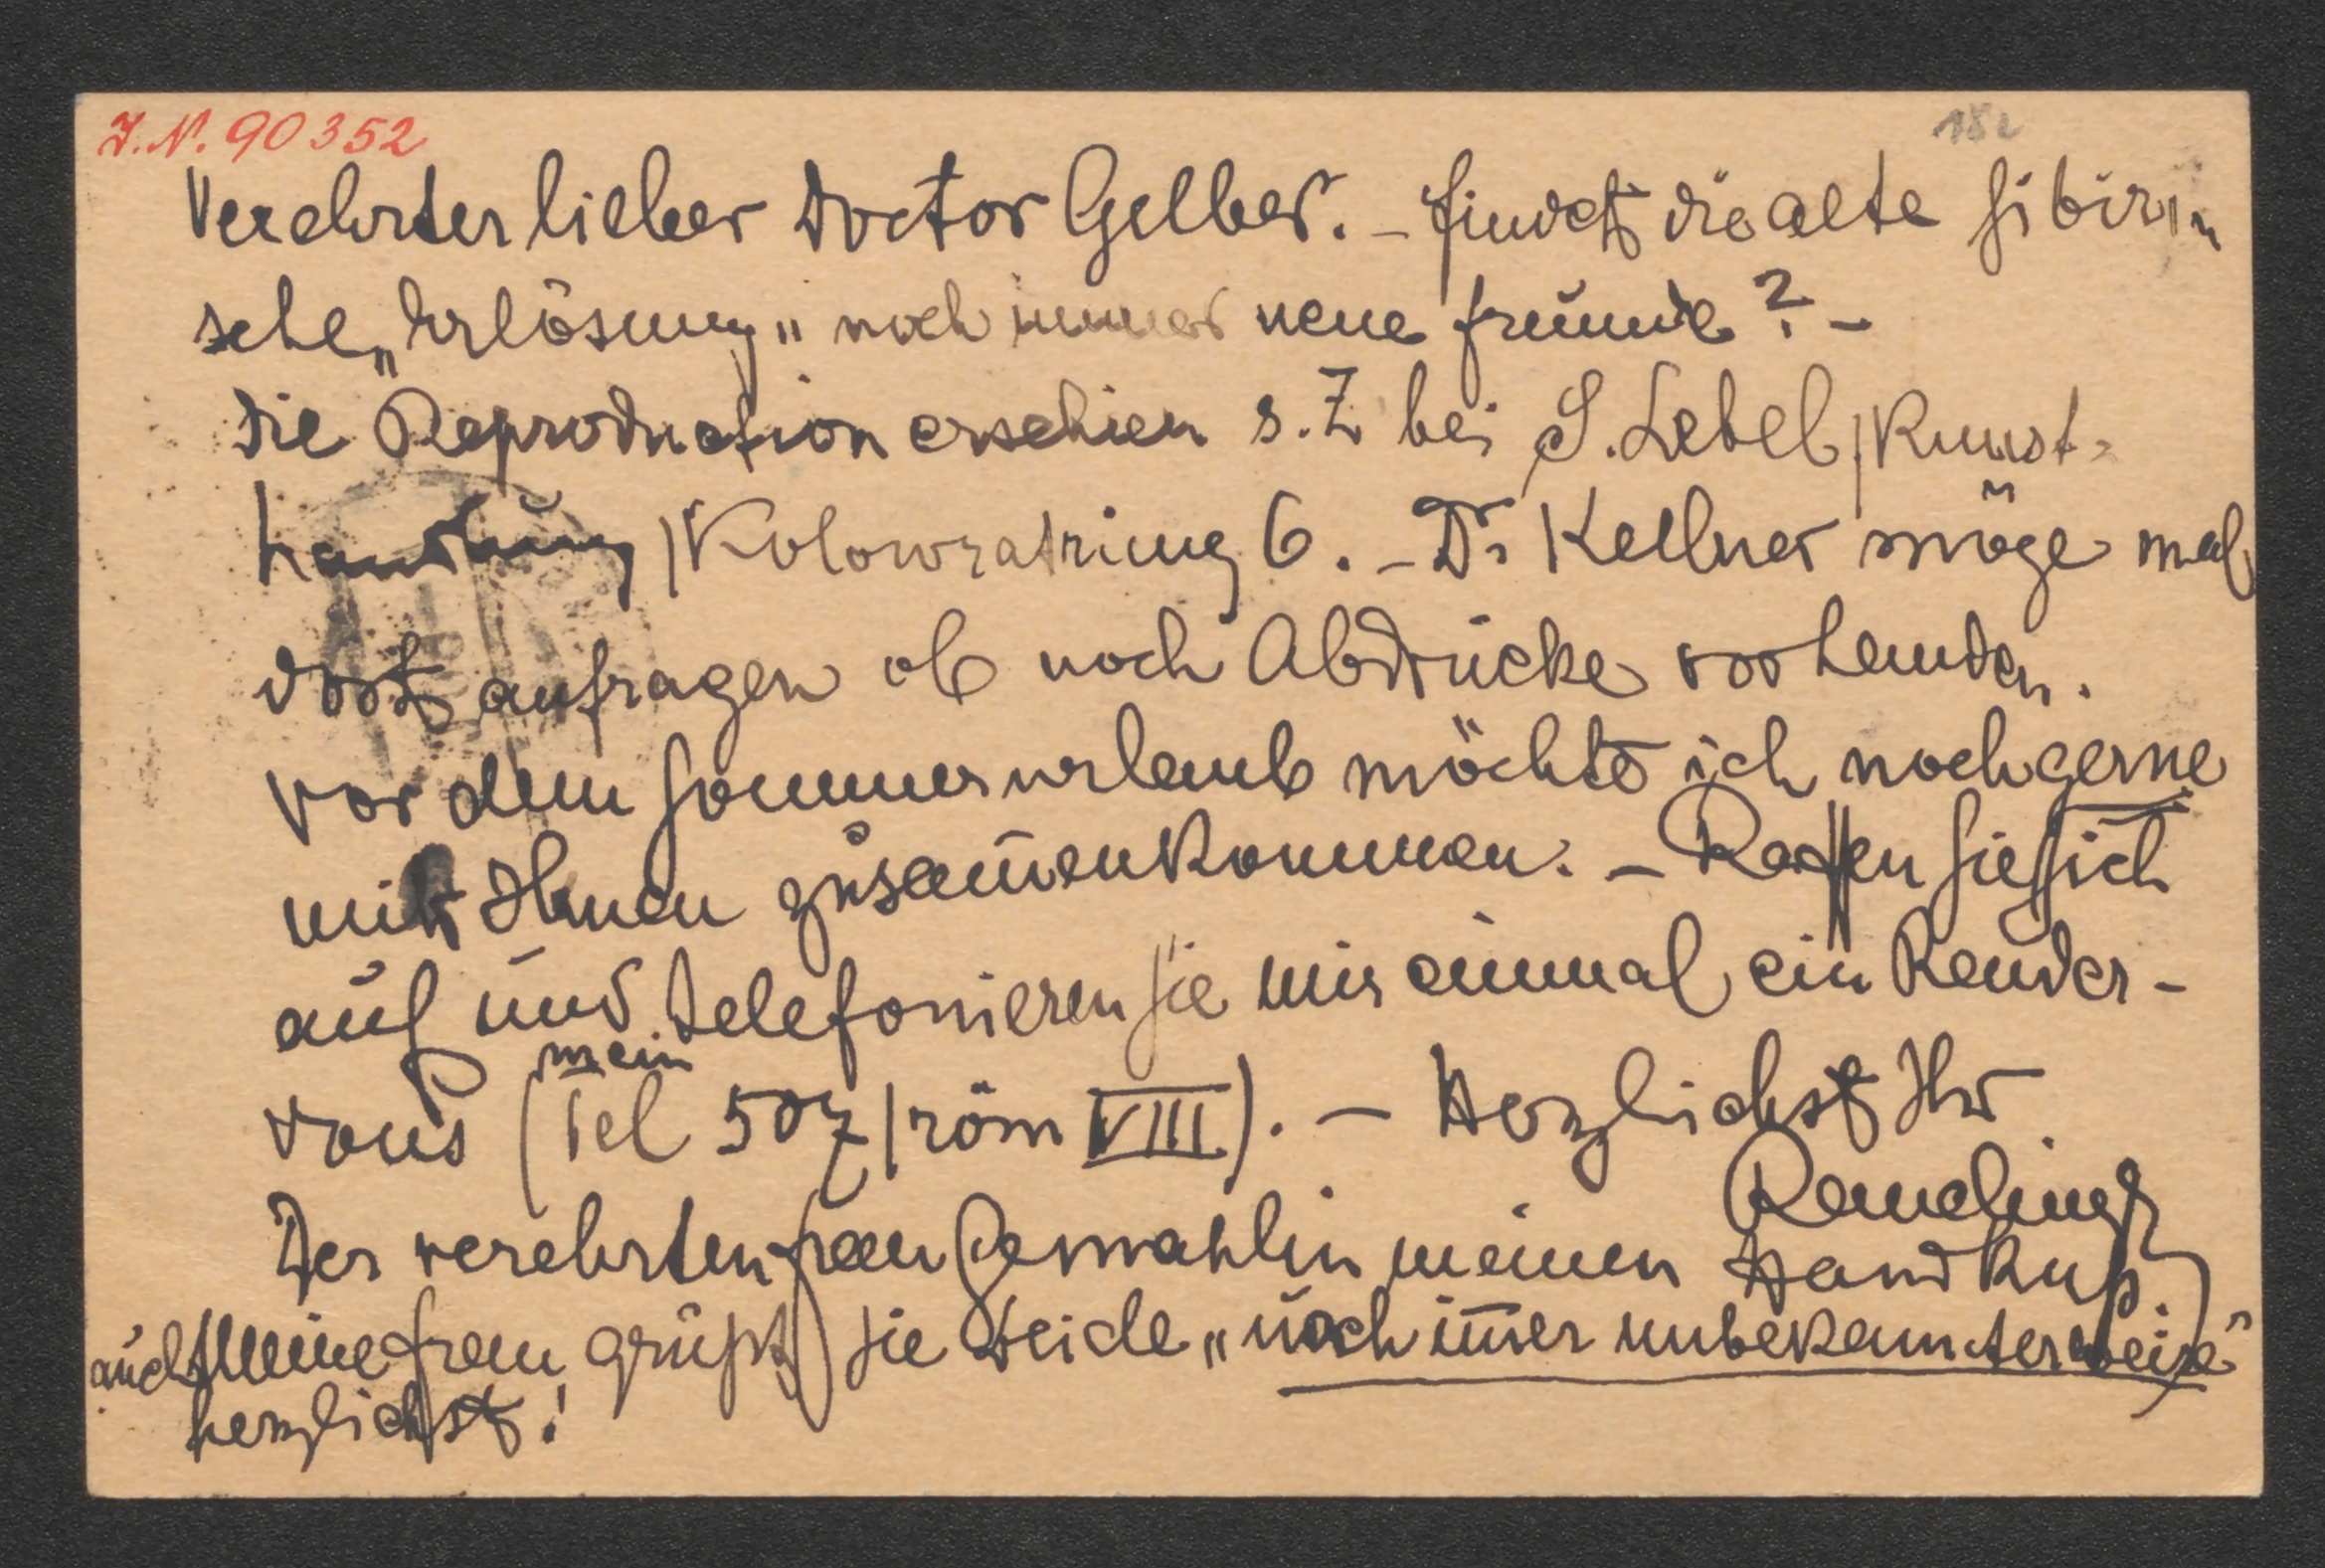 J.N. 90352
182
Verehrter lieber Doctor Gelber. – findet die alte sibiri=
sche „Erlösung" noch immer neue Freunde? –
Die Reproduction erschien s. Z bei S. Lebel / Kunst=
handlung / Kolowratring 6. – Dr Kellner möge mal
dort anfragen ob noch Abdrücke vorhanden.
Vor dem Sommerurlaub möchte ich noch gerne
mit Ihnen zusam̅enkommen. – Raffen Sie sich
auf und telefonieren Sie mir einmal ein Rendez-
vous (mein Tel 507 / röm VIII). – Herzlichst Ihr
Rauchinger
Der verehrten Frau Gemahlin meinen Handkuß.
auch Meine Frau grüßt Sie Beide „noch im̅er unbekannterweise"
herzlichst!